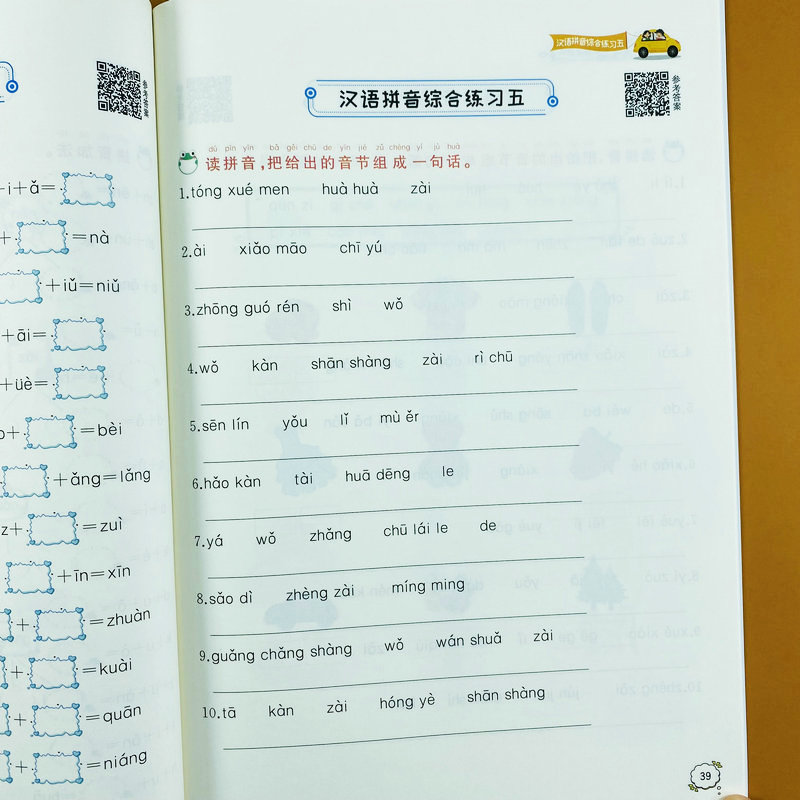 -i+ǎ=
+ =nà
+iǔ=niǔ
+āi=
+üè=
+ =bèi
+ǎng=lǎng
z+ =zuì
+īn=xīn
+ =zhuàn
+ =kuài
+ =quān
+ =niáng
参考答案
汉语拼音综合练习五
汉语拼音综合练习五
参考答案
dú pīn yīn bǎ gěi chū de yīn jié zǔ chéng yí jù huà
读拼音,把给出的音节组成一句话。
1.tóng xué men huà huà zài
2.ài xiǎo māo chī yú
3.zhōng guó rén shì wǒ
4.wǒ kàn shān shàng zài rì chū
5.sēn lín yǒu lǐ mù ěr
6.hǎo kàn tài huā dēng le
7.yá wǒ zhǎng chū lái le de
8.sǎo dì zhèng zài míng ming
9.guǎng chǎng shàng wǒ wán shuǎ zài
10.tā kàn zài hóng yè shān shàng
39